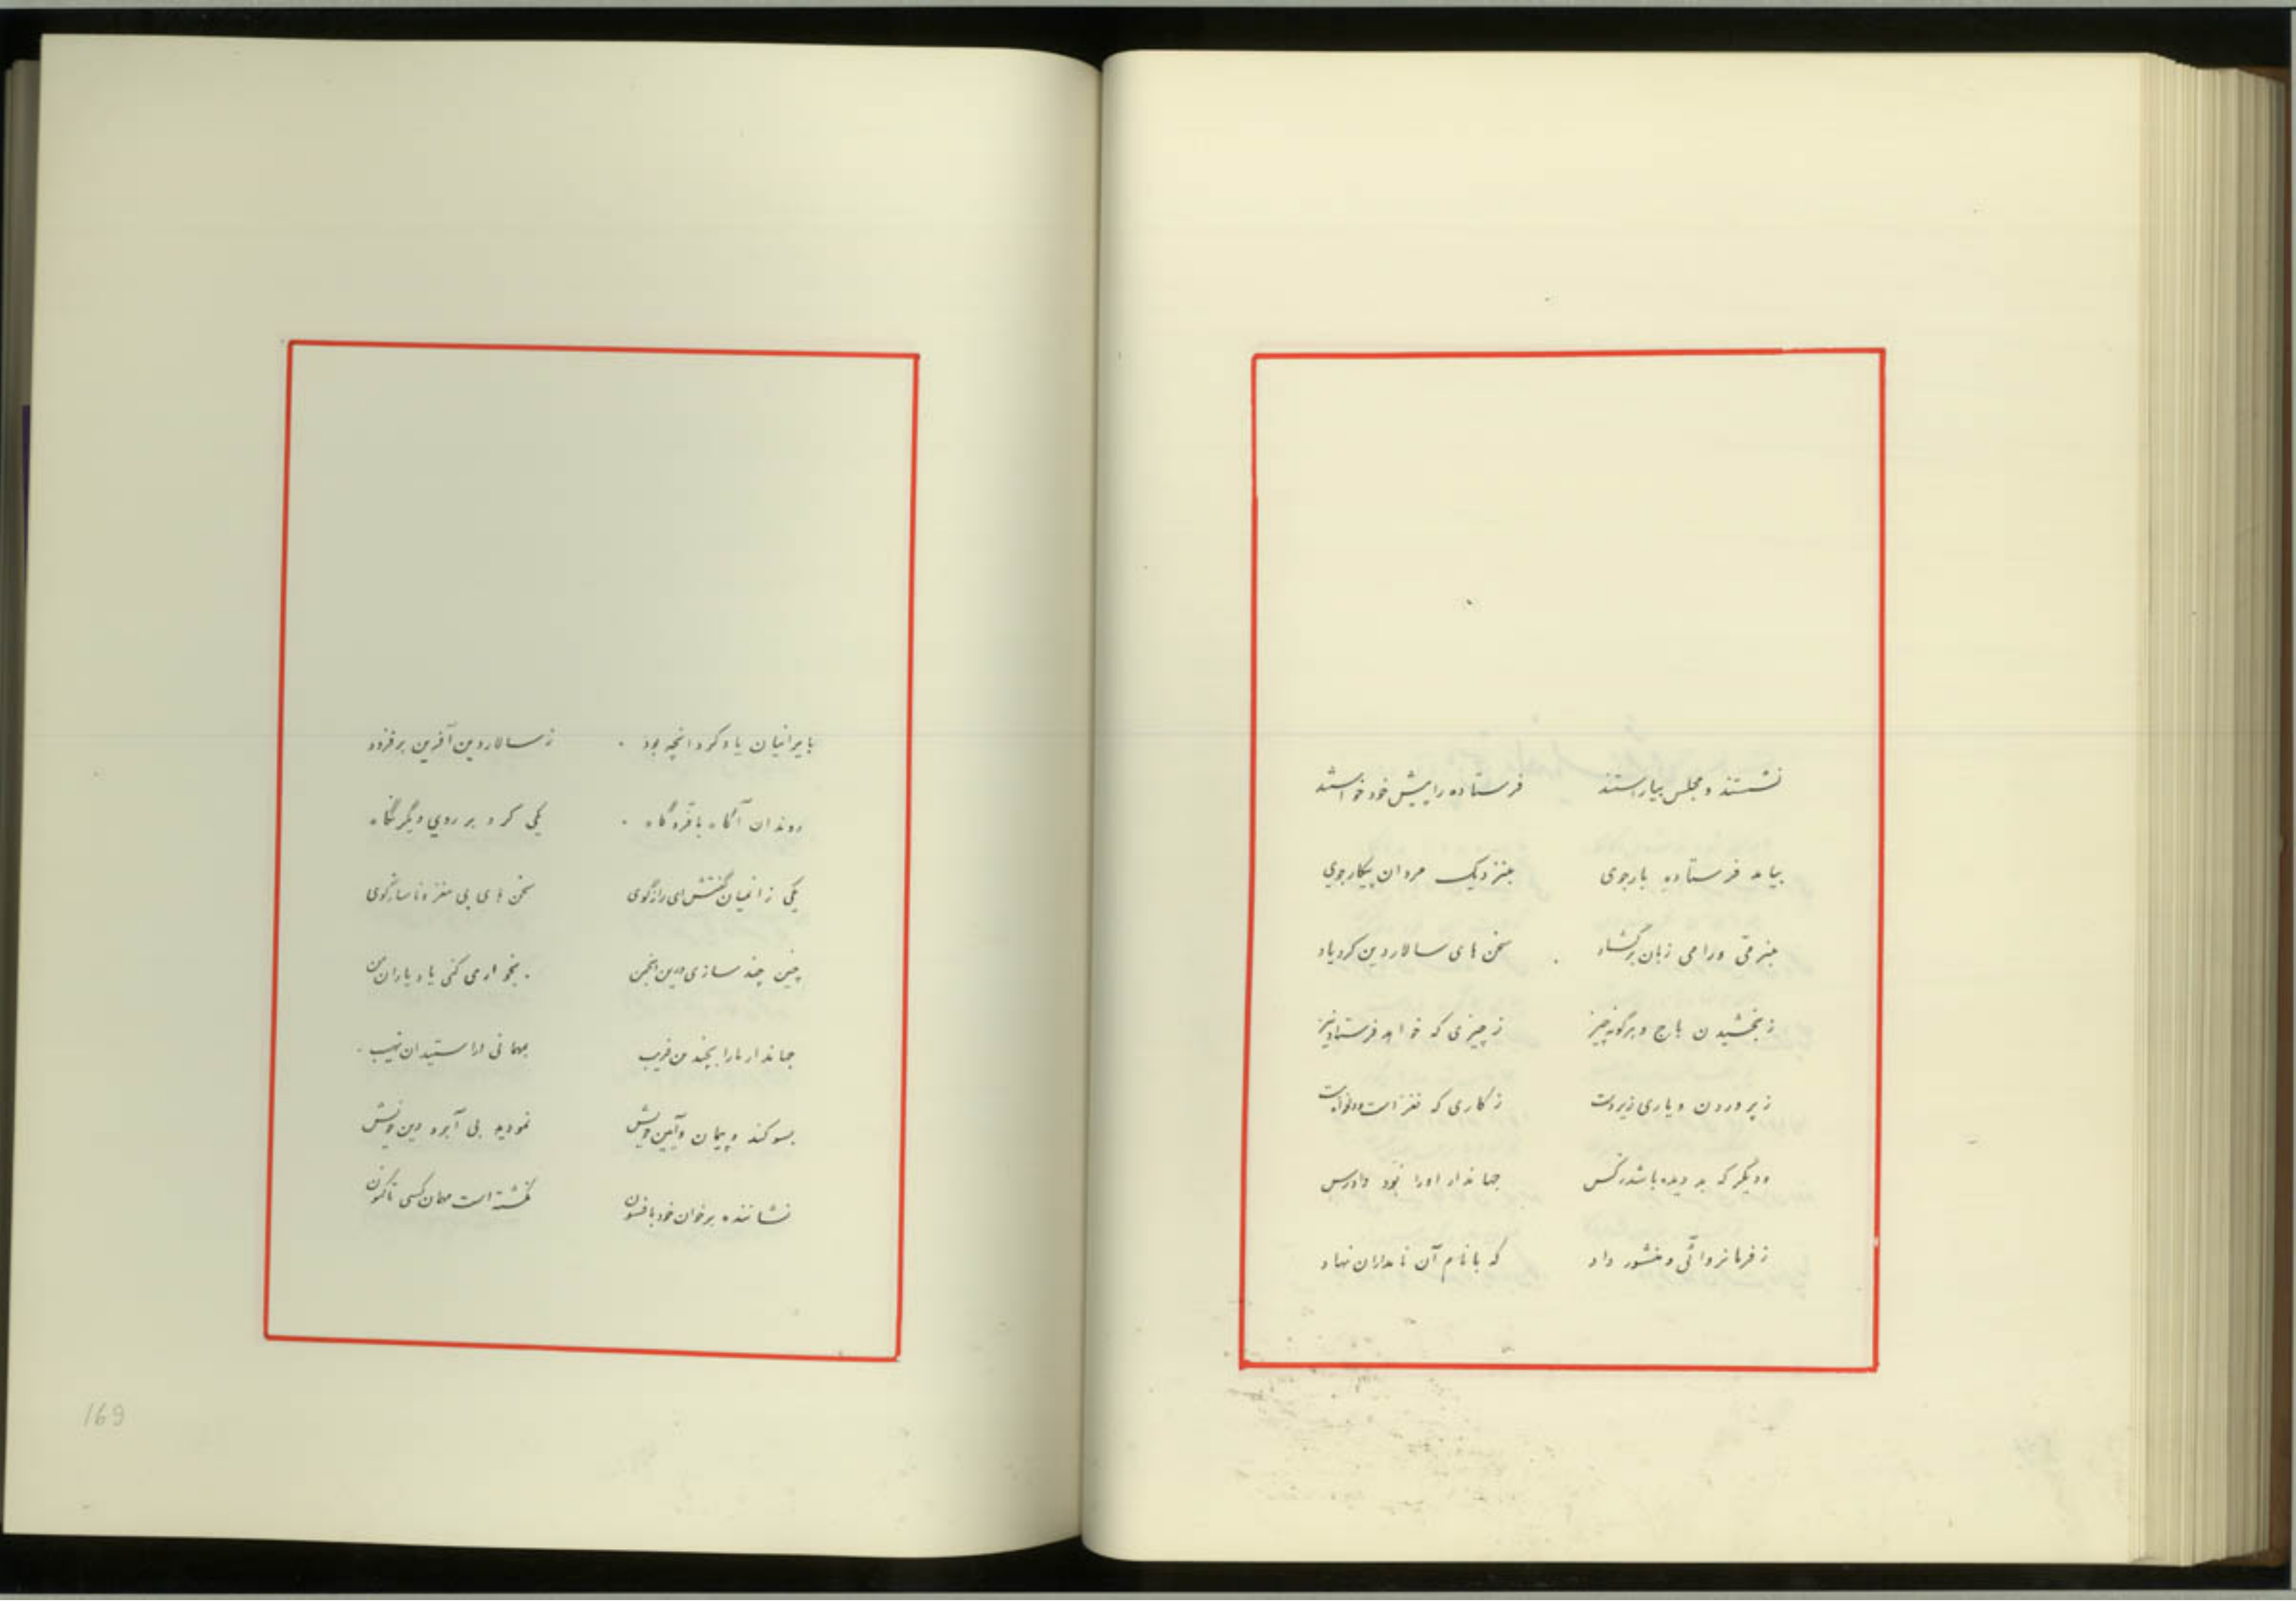 نشستند و مجلس بیاراستند فرستاده را پیش خود خواستند
بیامد فرستاده یارجوی بنزدیک مردان پیکارجوی
بنرمی ورامی زبان برگشاد سخن های سالار دین کرد یاد
ز بخشیدن باج و هرگونه چیز ز چیزی که خواهد فرستاد نیز
ز پروردن و یاری زیردست ز کاری که نغز است و
و دیگر که بد دیده باشد ز کس جهاندار اورا بود دادرس
ز فرمانروائی و منشور داد که با نام آن نامداران نهاد
بایرانیان یاد کرد انچه بود ز سالار دین آفرین برفزود
روندان آگاه با فره گاه یکی کرد بر روی دیگر نگاه
یکی زانمیان گفتش ای رازگوی سخن های بی مغز و ناسازگوی
چنین چند سازی درین انجمن بخواری کنی یاد یاران من
جهاندار مارا بچندین فریب بمهانی اراستید ان نهیب
بسوکند و پیمان و آیین خویش نمودید بی آبرو دین خویش
نشاننده بر خوان خود با فسون نکشته است مهمان کسی تاکنون
169